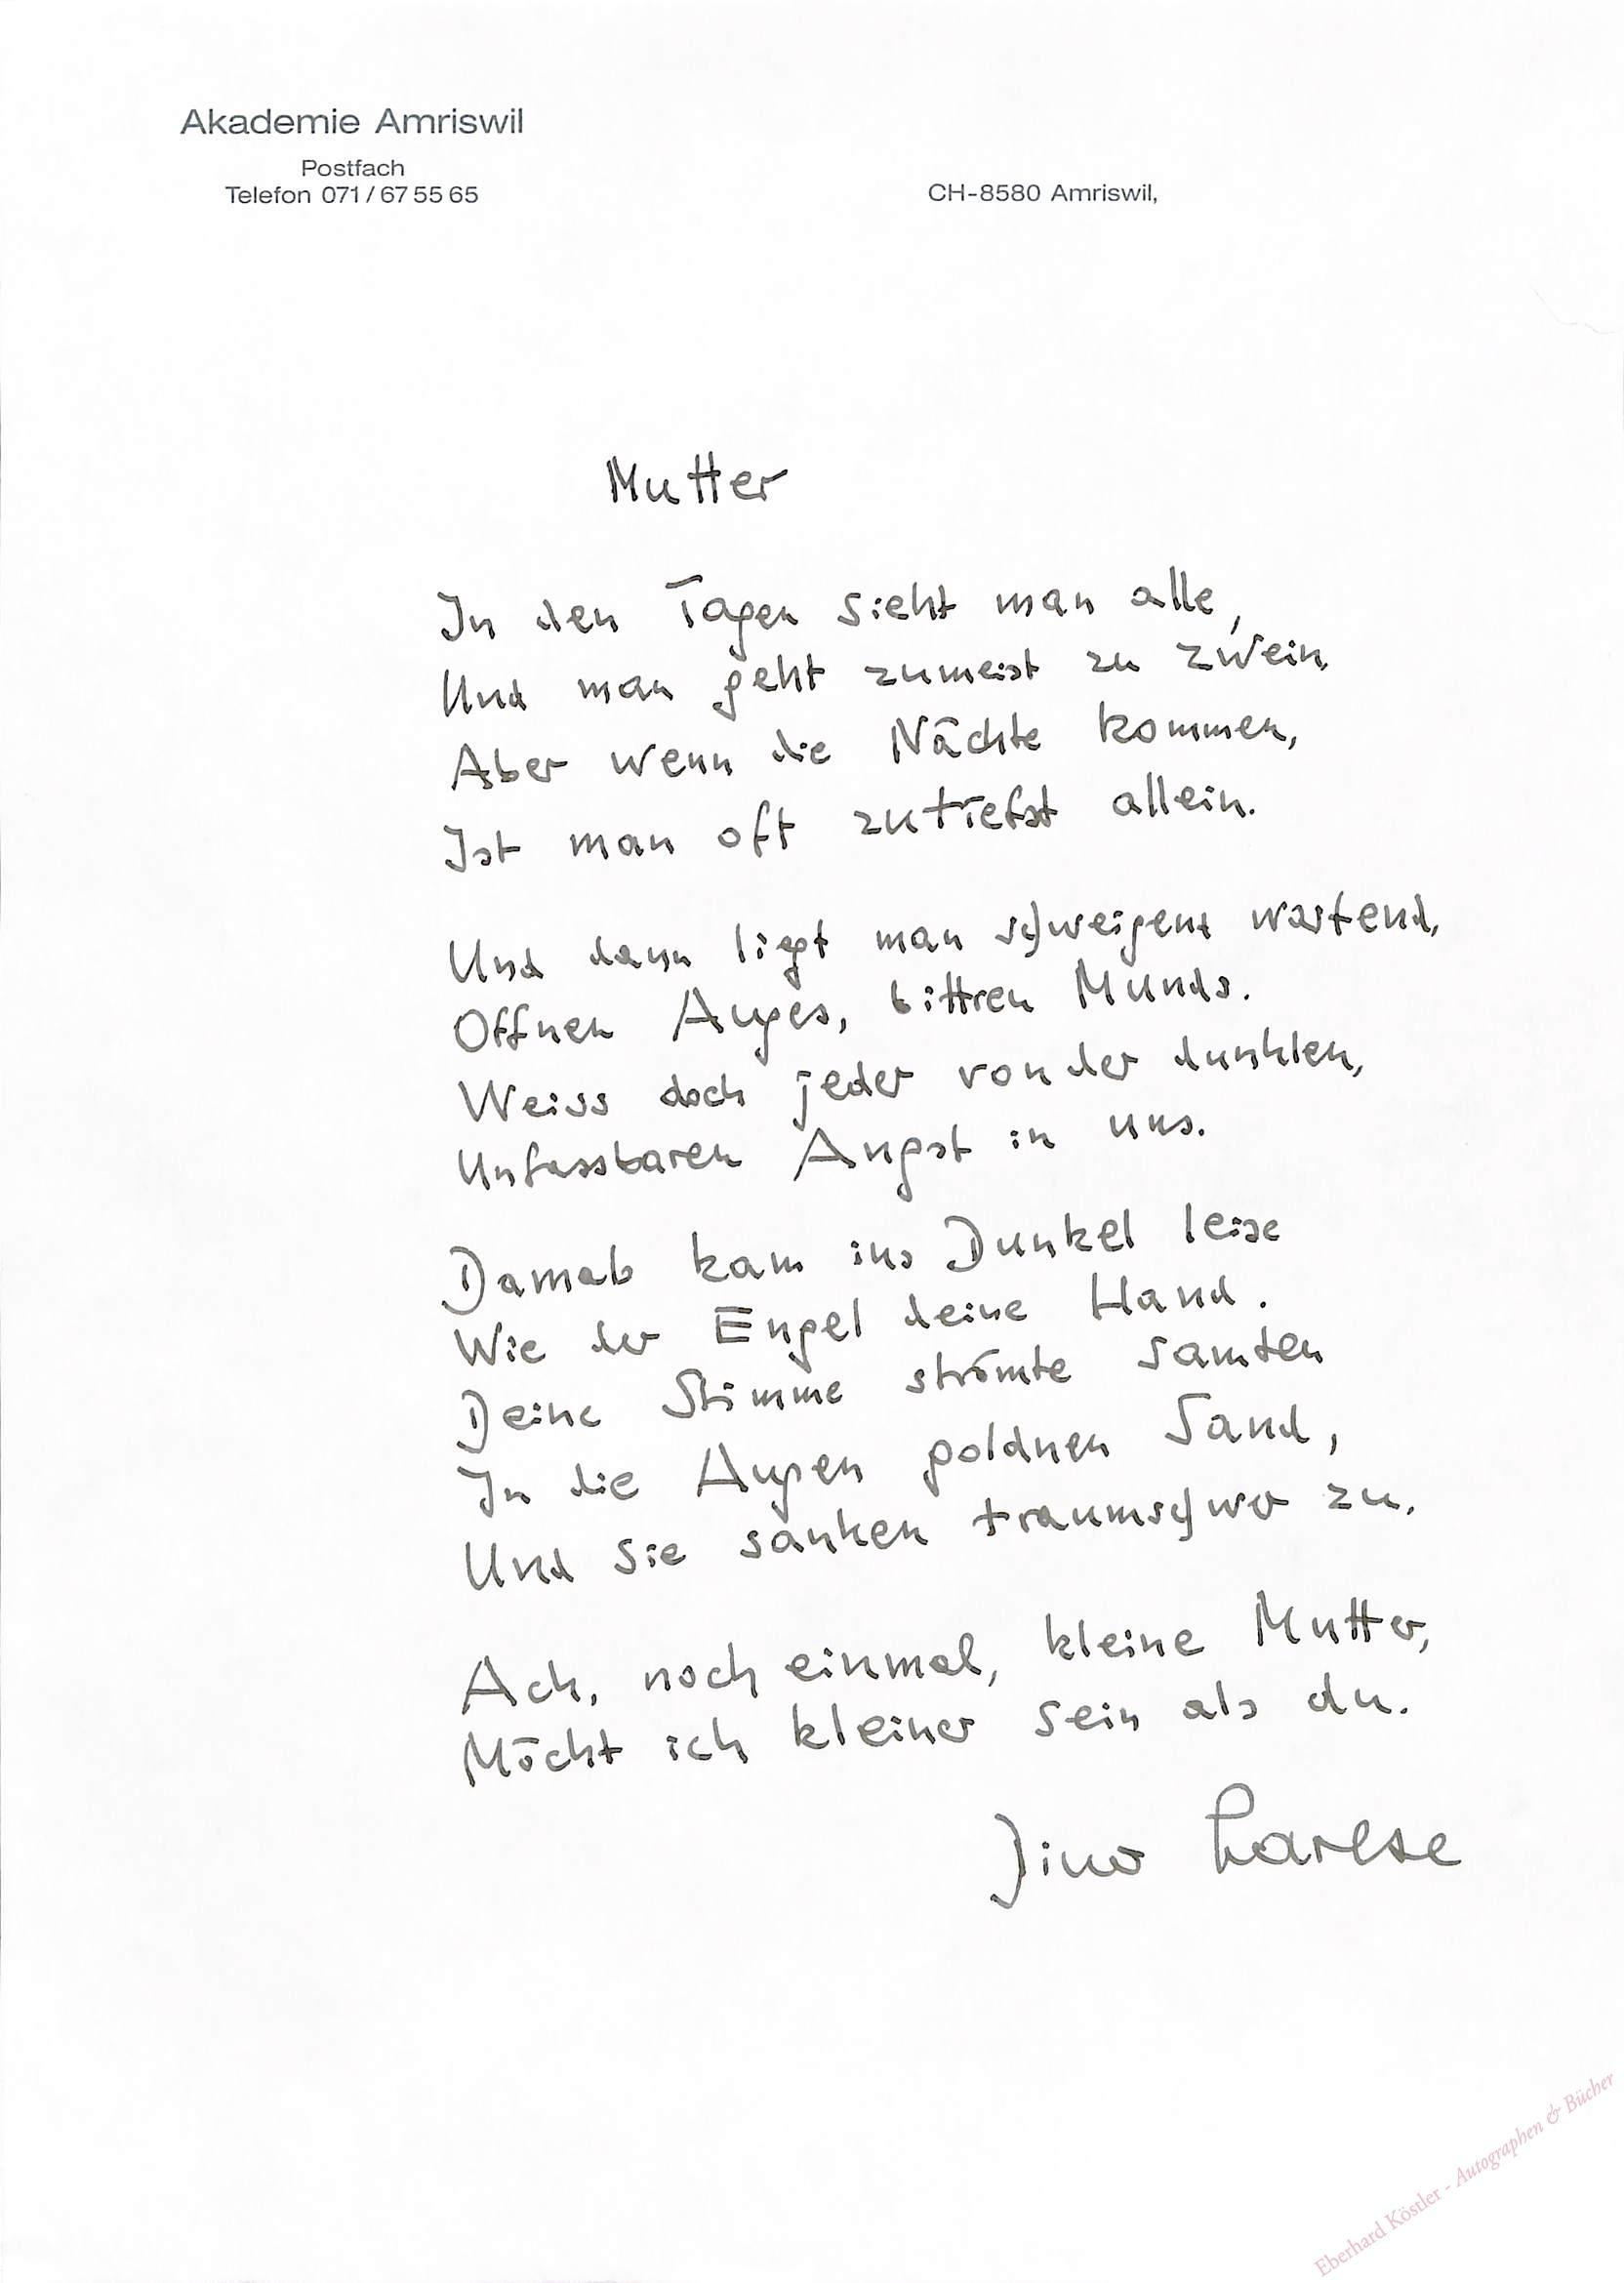 Akademie Amriswil
Postfach
Telefon 071 / 67 55 65
CH-8580 Amriswil,
Mutter
In den Tagen sieht man alle,
Und man geht zumeist zu zwein.
Aber wenn die Nächte kommen,
Ist man oft zutiefst allein.
Und dann liegt man schweigend wartend,
Offnen Auges, bittren Munds.
Weiss doch jeder von der dunklen,
Unfassbaren Angst in uns.
Damals kam ins Dunkel leise
Wie der Engel deine Hand.
Deine Stimme strömte samten
In die Augen goldnen Sand,
Und sie sanken traumschwer zu.
Ach, noch einmal, kleine Mutter,
Möcht ich kleiner sein als du.
Dino Larese
Eberhard Köstler - Autographen & Bücher